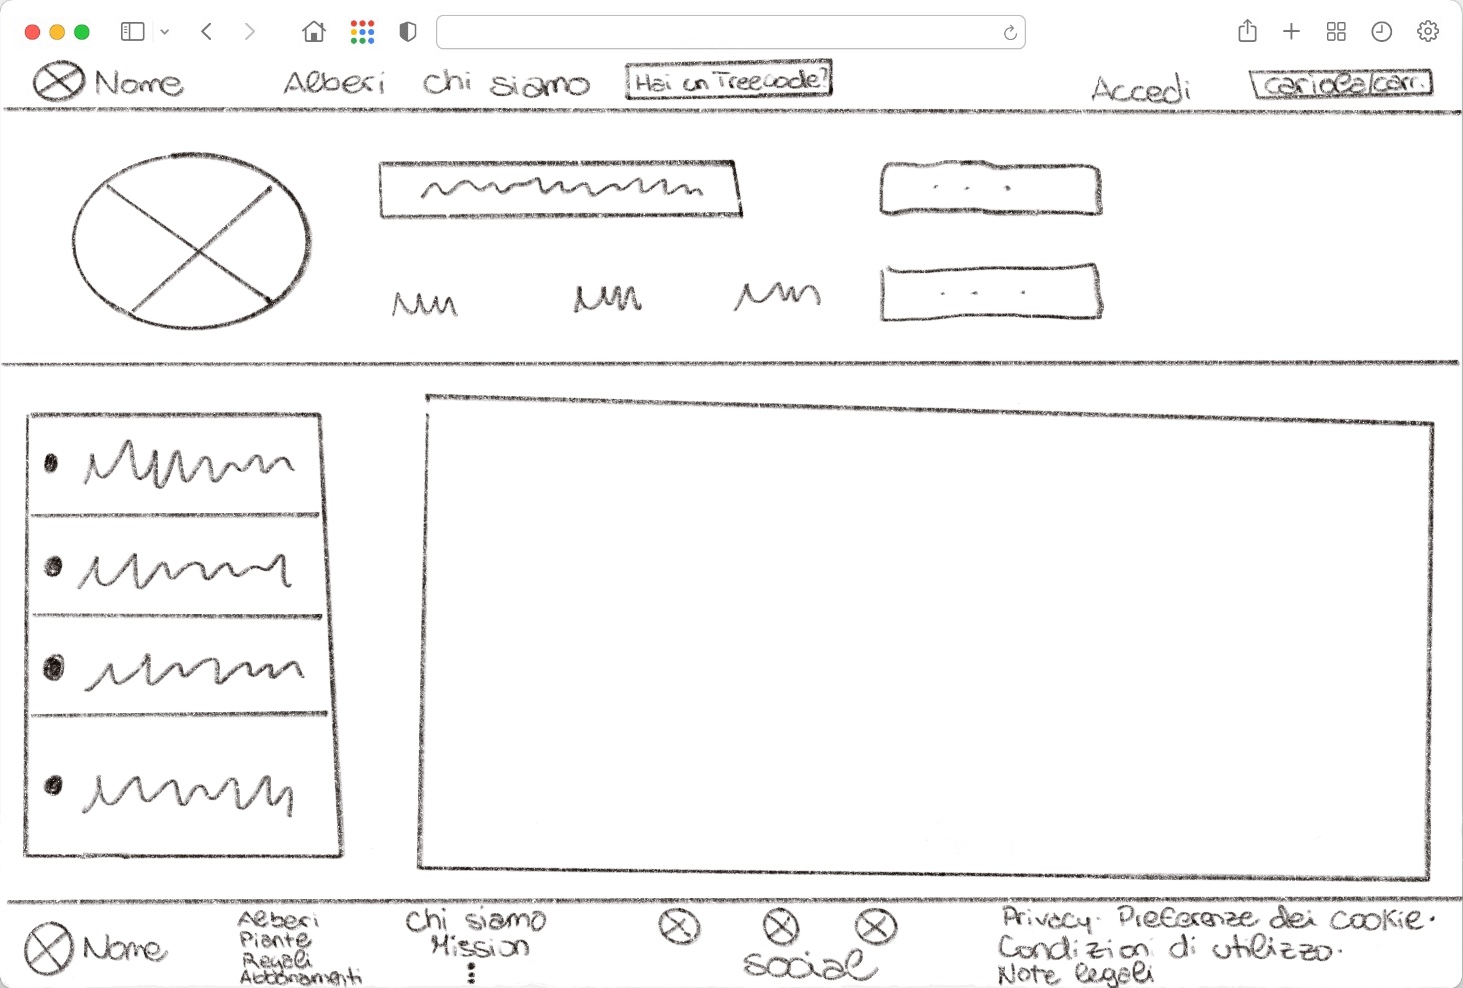 Nome
Alberi
Chi siamo
Hai un TreeCode?
Accedi
cariola/carr.
Nome
Alberi
Piante
Regali
Abbonamenti
Chi siamo
Mission
social
Privacy. Preferenze dei cookie.
Condizioni di utilizzo.
Note legali